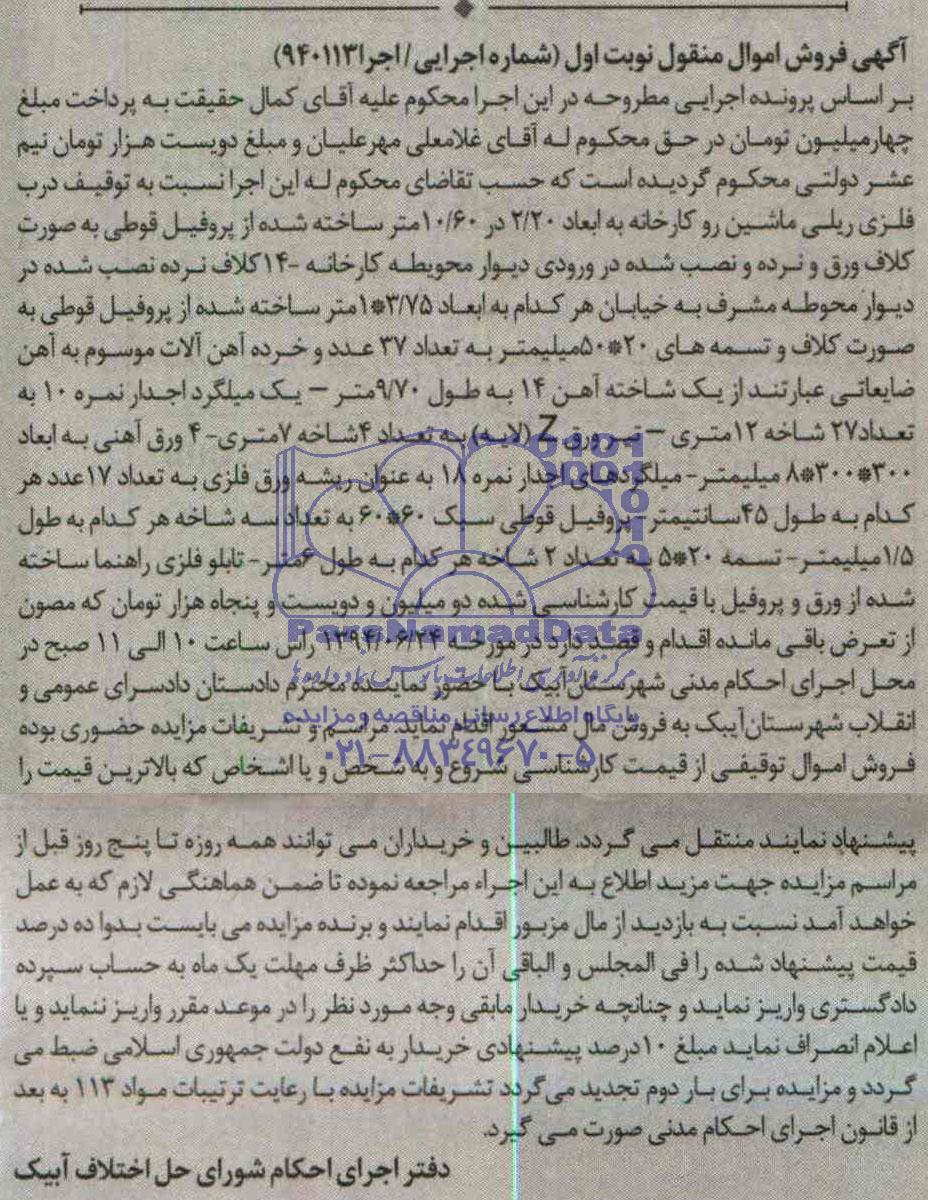 آگهی فروش اموال منقول نوبت اول (شماره اجرایی/اجرا۹۴۰۱۱۳)
بر اساس پرونده اجرایی مطروحه در این اجرا محکوم علیه آقای کمال حقیقت به پرداخت مبلغ
چهارمیلیون تومان در حق محکوم له آقای غلامعلی مهرعلیان و مبلغ دویست هزار تومان نیم
عشر دولتی محکوم گردیده است که حسب تقاضای محکوم له این اجرا نسبت به توقیف درب
فلزی ریلی ماشین رو کارخانه به ابعاد ۲/۲۰ در ۱۰/۶۰متر ساخته شده از پروفیل قوطی به صورت
کلاف ورق و نرده و نصب شده در ورودی دیوار محویطه کارخانه -۱۴کلاف نرده نصب شده در
دیوار محوطه مشرف به خیابان هر کدام به ابعاد ۳/۷۵*۱متر ساخته شده از پروفیل قوطی به
صورت کلاف و تسمه های ۲۰*۵۰میلیمتر به تعداد ۳۷ عدد و خرده آهن آلات موسوم به آهن
ضایعاتی عبارتند از یک شاخته آهن ۱۴ به طول ۹/۷۰متر – یک میلگرد اجدار نمره ۱۰ به
تعداد۲۷ شاخه ۱۲متری – تیر ورق Z (لایه) به تعداد ۴شاخه ۷متری- ۴ ورق آهنی به ابعاد
۳۰۰*۳۰۰*۸ میلیمتر- میلگردهای اجدار نمره ۱۸ به عنوان ریشه ورق فلزی به تعداد ۱۷عدد هر
کدام به طول ۴۵سانتیمتر- پروفیل قوطی سبک ۶۰*۶۰ به تعداد سه شاخه هر کدام به طول
۱/۵میلیمتر- تسمه ۲۰*۵ به تعداد ۲ شاخه هر کدام به طول ۶متر- تابلو فلزی راهنما ساخته
شده از ورق و پروفیل با قیمت کارشناسی شده دو میلیون و دویست و پنجاه هزار تومان که مصون
از تعرض باقی مانده اقدام و قصد دارد در مورخه ۱۳۹۴/۰۶/۲۴ راس ساعت ۱۰ الی ۱۱ صبح در
محل اجرای احکام مدنی شهرستان‌آبیک با حضور نماینده محترم دادستان دادسرای عمومی و
انقلاب شهرستان‌آبیک به فروش مال مشعور اقدام نماید. مراسم و تشریفات مزایده حضوری بوده
فروش اموال توقیفی از قیمت کارشناسی شروع و به شخص و یا اشخاص که بالاترین قیمت را
پیشنهاد نمایند منتقل می گردد. طالبین و خریداران می توانند همه روزه تا پنج روز قبل از
مراسم مزایده جهت مزید اطلاع به این اجراء مراجعه نموده تا ضمن هماهنگی لازم که به عمل
خواهد آمد نسبت به بازدید از مال مزبور اقدام نمایند و برنده مزایده می بایست بدوا ده درصد
قیمت پیشنهاد شده را فی المجلس و الباقی آن را حداکثر ظرف مهلت یک ماه به حساب سپرده
دادگستری واریز نماید و چنانچه خریدار مابقی وجه مورد نظر را در موعد مقرر واریز ننماید و یا
اعلام انصراف نماید مبلغ ۱۰درصد پیشنهادی خریدار به نفع دولت جمهوری اسلامی ضبط می
گردد و مزایده برای بار دوم تجدید می‌گردد تشریفات مزایده با رعایت ترتیبات مواد ۱۱۳ به بعد
از قانون اجرای احکام مدنی صورت می گیرد.
دفتر اجرای احکام شورای حل اختلاف آبیک
ParsNamadData
پایگاه اطلاع رسانی مناقصه و مزایده
۰۲۱-۸۸۳۴۹۶۷۰-۵